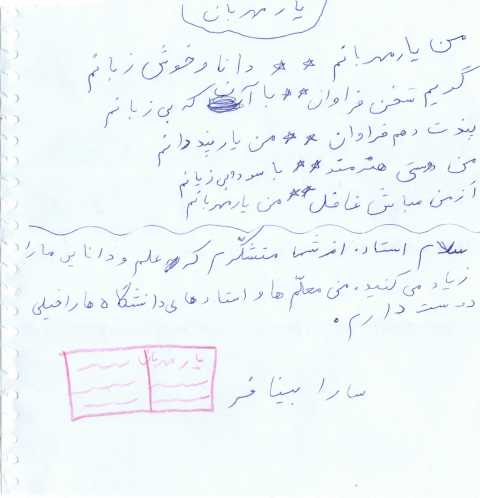 یار مهربان
من یار مهربانم ** دانا و خوش زبانم
گویم سخن فراوان ** با آن که بی زبانم
پندت دهم فراوان ** من یار پند دانم
من دوستی هنرمند ** با سود و بی زیانم
از من مباش غافل ** من یار مهربانم
سلام استاد. از شما متشکّرم که علم و دانایی ما را
زیاد می کنید. من معلّم ها و استادهای دانشگاه ها را خیلی
دوست دارم.
یار مهربان
سارا بینا فر